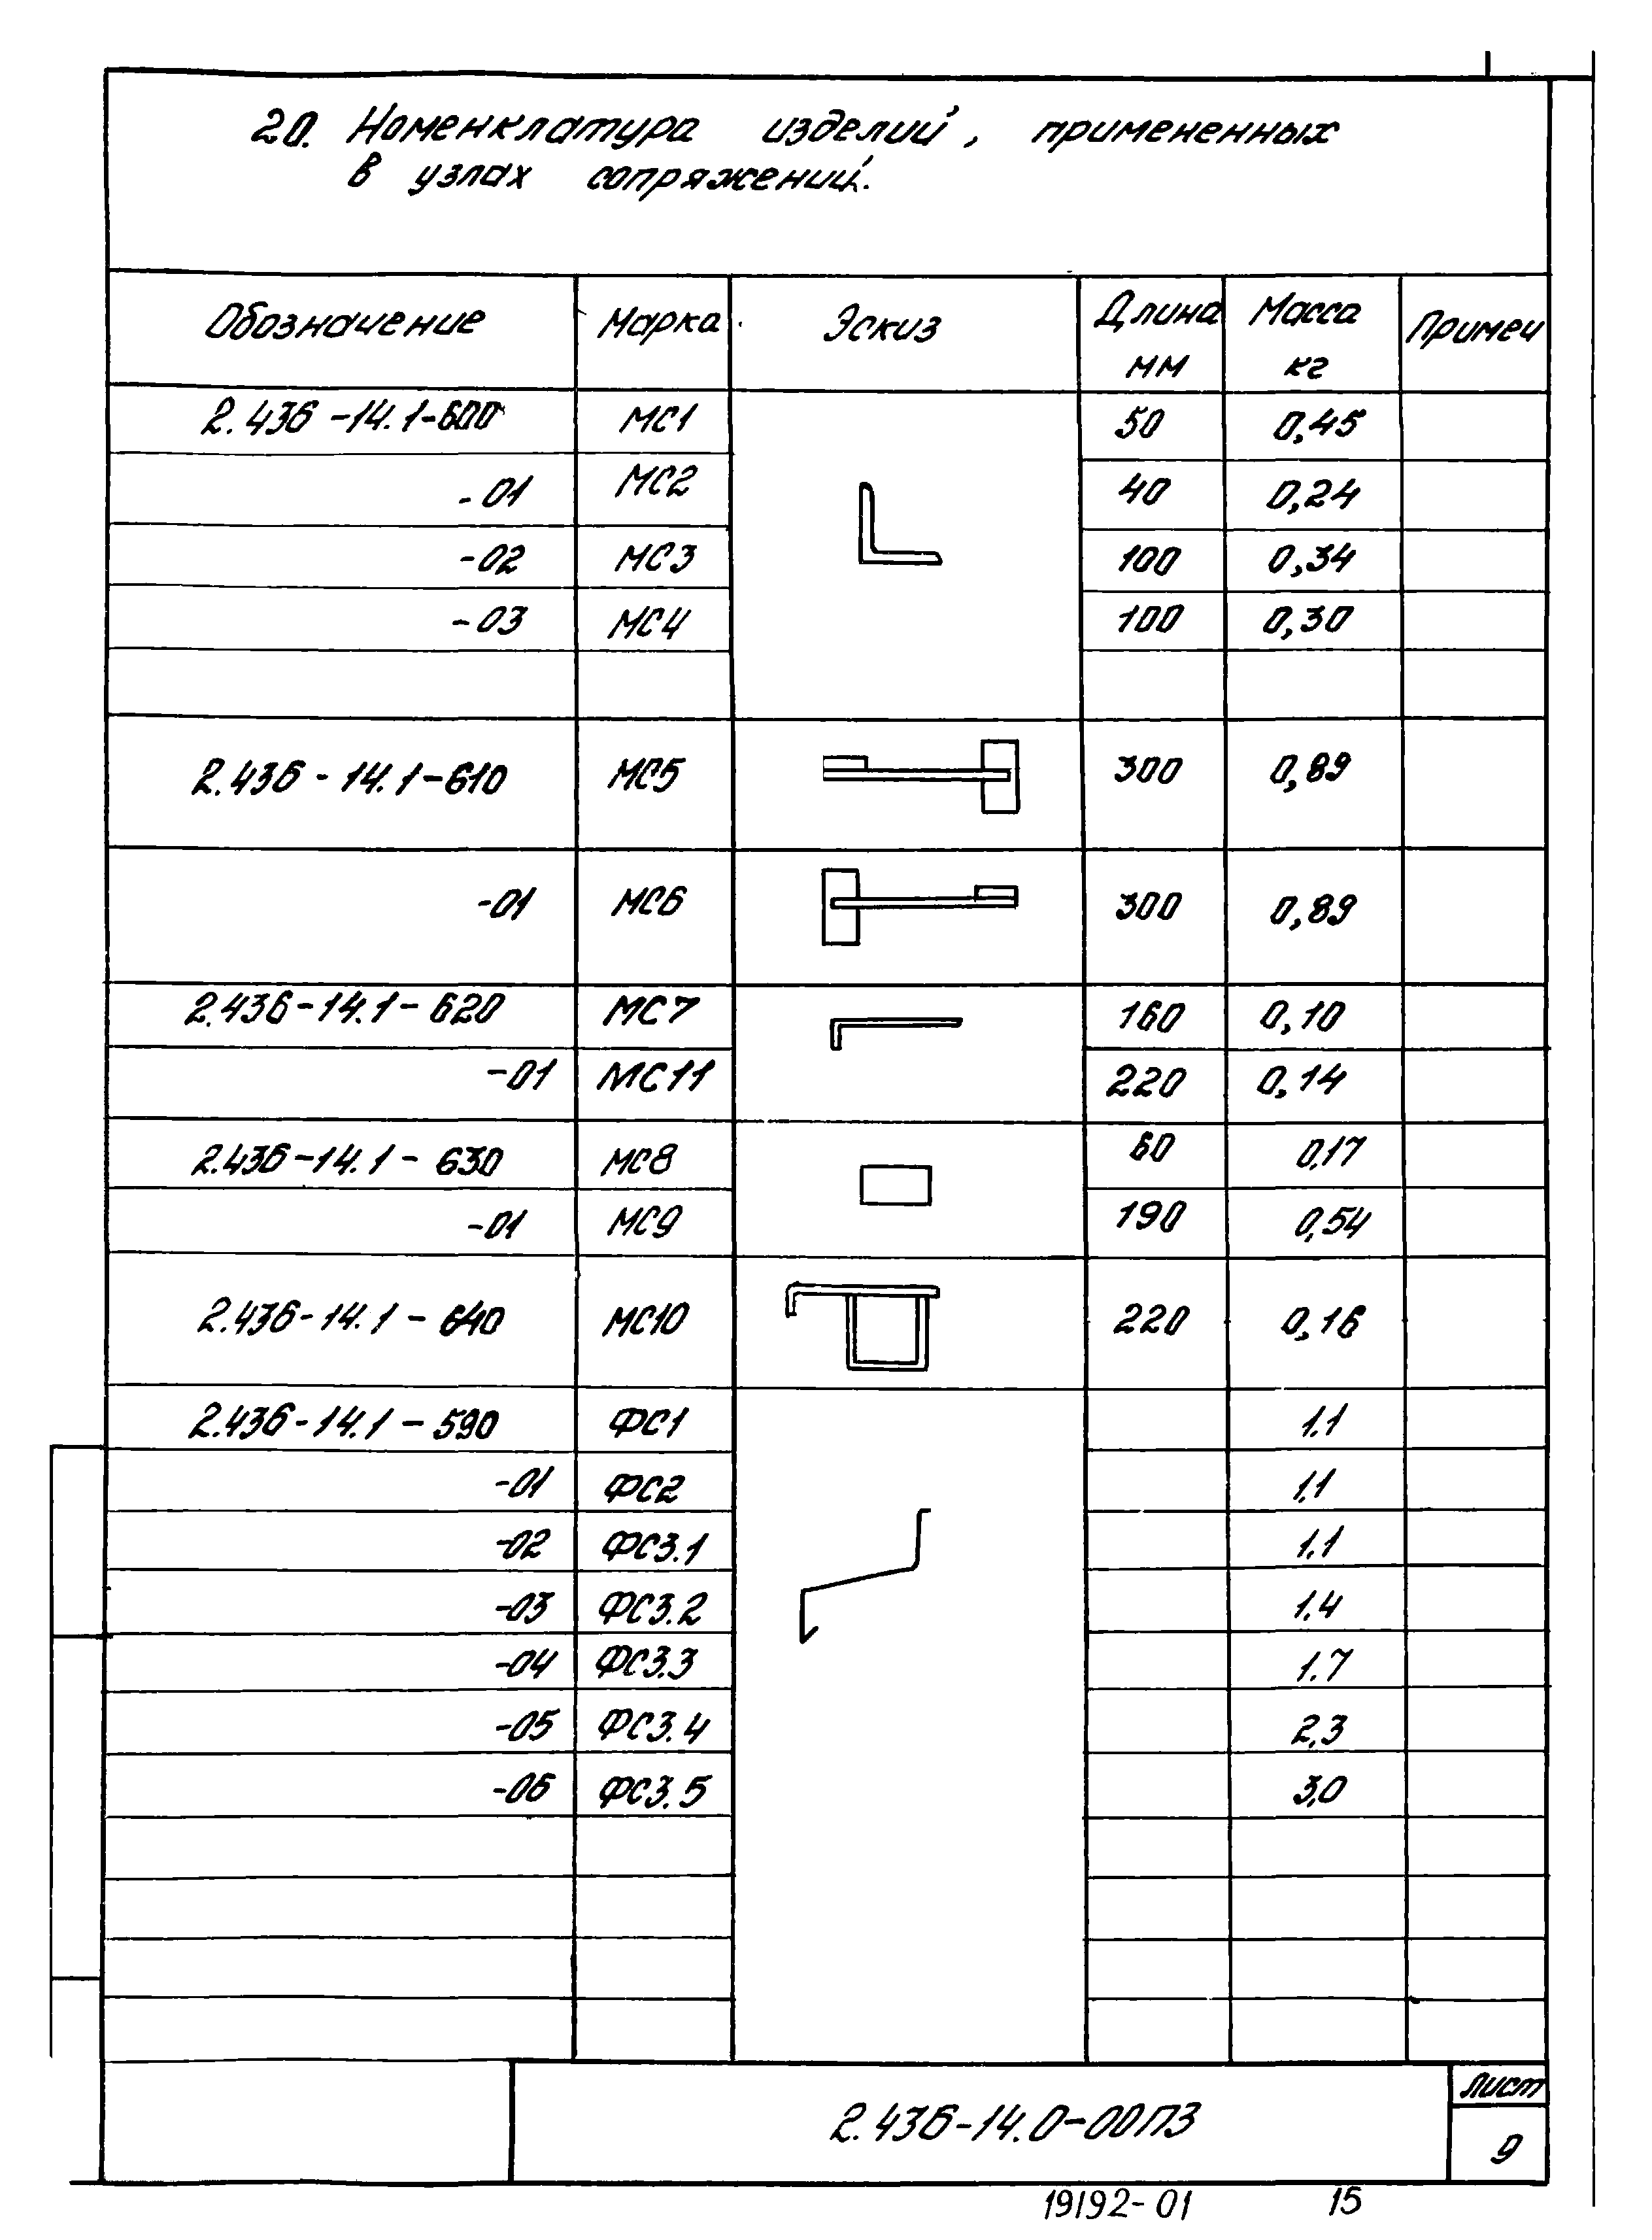 20. Номенклатура изделий, примененных
в узлах сопряжений.
Обозначение Марка Эскиз Длина мм Масса кг Примеч
2.436-14.1-600 МС1 50 0,45
-01 МС2 40 0,24
-02 МС3 100 0,34
-03 МС4 100 0,30
2.436-14.1-610 МС5 300 0,89
-01 МС6 300 0,89
2.436-14.1-620 МС7 160 0,10
-01 МС11 220 0,14
2.436-14.1-630 МС8 60 0,17
-01 МС9 190 0,54
2.436-14.1-640 МС10 220 0,16
2.436-14.1-590 ФС1 1.1
-01 ФС2 1.1
-02 ФС3.1 1.1
-03 ФС3.2 1.4
-04 ФС3.3 1.7
-05 ФС3.4 2,3
-06 ФС3.5 3,0
2.436-14.0-00ПЗ
лист
9
19192-01 15